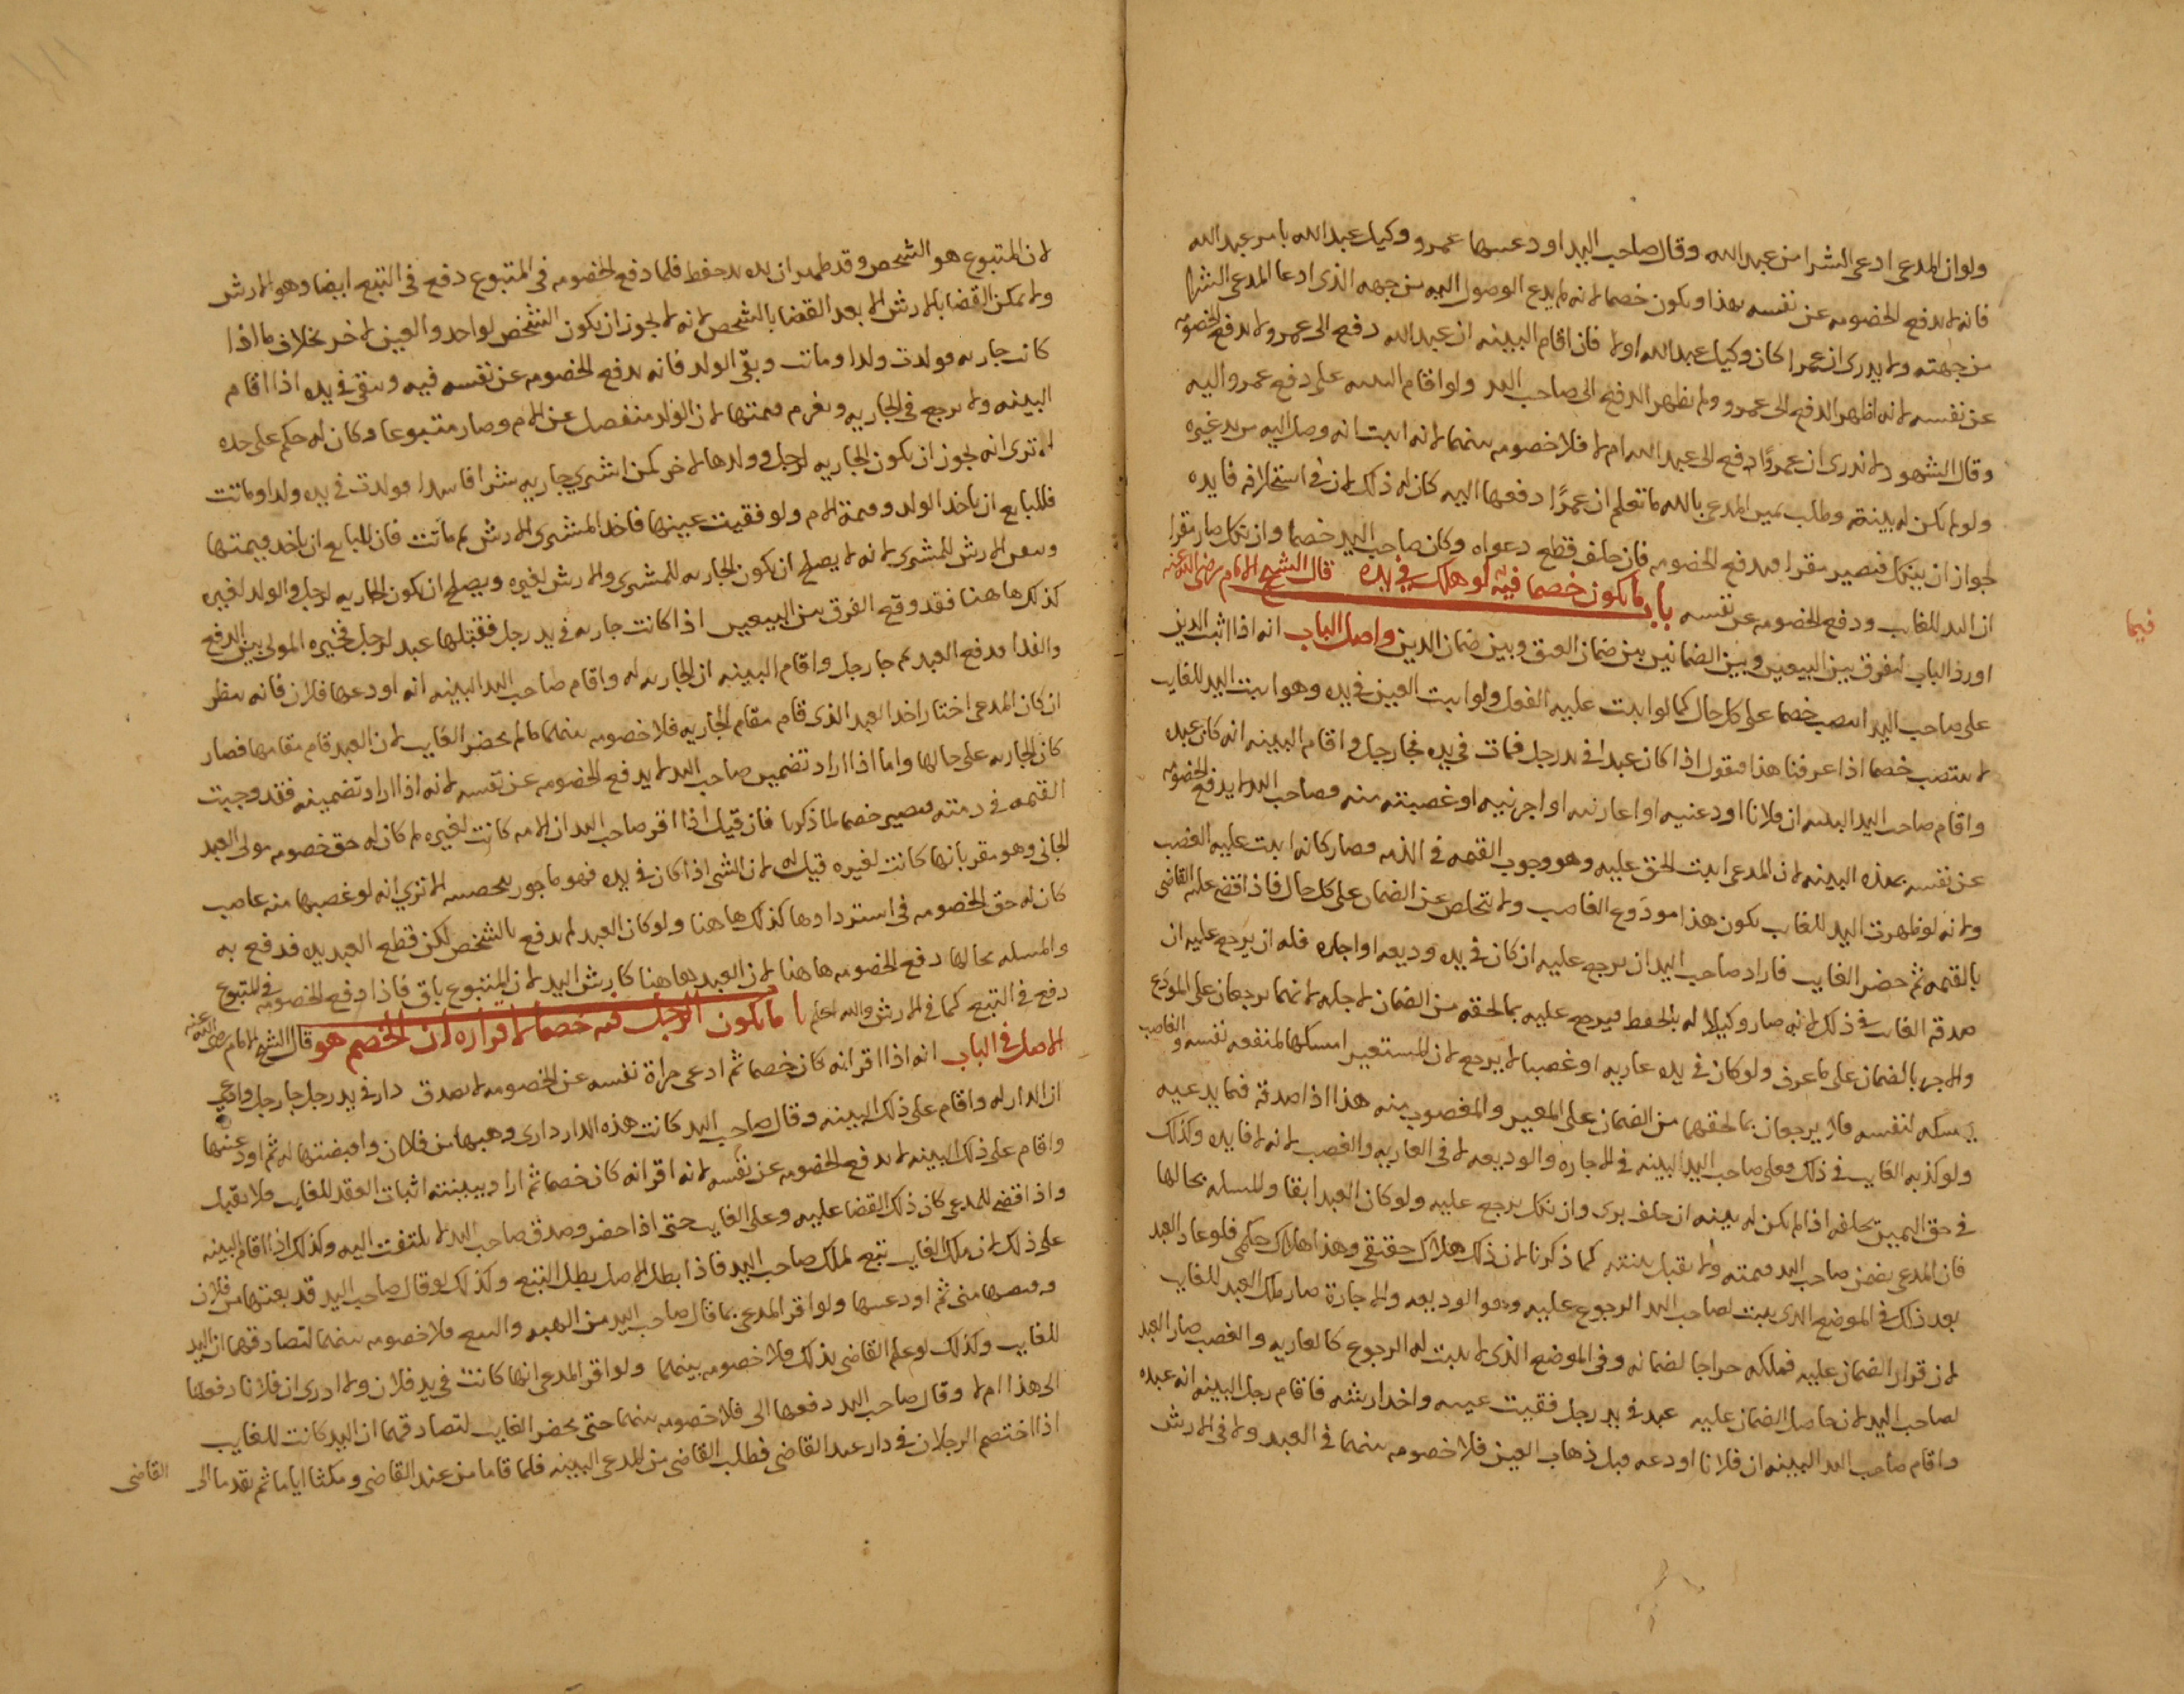 ولو ان المدعى ادعى الشرا من عبد الله وقال صاحب اليد اودعنيها عمرو وكيل عبد الله بامر عبد الله
فانه لا تدفع الخصومه عن نفسه بهذا ويكون خصما لانه لم يدع الوصول اليه من جهه الذى ادعا المدعى الشرا
من جهته ولا يدرى ان عمرا كان وكيل عبد الله او لا فان اقام البينه ان عبد الله دفع الى عمرو لا تدفع الخصومه
عن نفسه لانه اظهر الدفع الى عمرو ولم يظهر الدفع الى صاحب اليد ولو اقام البينه على دفع عمرو اليه
وقال الشهود لا ندرى ان عمروا دفع الى عبد الله ام لا فلا خصومه بينهما لانه اثبت انه وصل اليه من يد غيره
ولو لم يكن له بينة وطلب يمين المدعى بالله ما تعلم ان عمرًا دفعها اليه كان له ذلك لان فى استحلافه فايده
لجواز ان ينكل فيصير مقرا فيدفع الخصومه فان حلف قطع دعواه وكان صاحب اليد خصما وان نكل صار مقرا
ان اليد للغايب ودفع الخصومه عن نفسه باب ما يكون خصما فيه لو هلك فى يده قال الشيخ الامام رضى الله عنه
اورد الباب لتفرق بين البيعين وبين الضمانين بين ضمان العتق وبين ضمان الدين واصل الباب انه اذا اثبت الدين
على صاحب اليد انتصب خصما على كل حال كما لو اثبت عليه الفعل ولو اثبت العين فى يده وهو اثبت اليد للغايب
لا ينتصب خصما اذا عرفنا هذا فنقول اذا كان عبدا فى يد رجل فمات فى يده فجا رجل واقام البينه انه كان عبده
واقام صاحب اليد البينه ان فلانا اودعنيه او اعارنيه او اجرنيه او غصبته منه فصاحب اليد لا يدفع الخصومه
عن نفسه بهذه البينه لان المدعى اثبت الحق عليه وهو وجوب القيمه فى الذمه فصار كانه اثبت عليه الغصب
ولانه لو ظهرت اليد للغايب يكون هذا مودَع الغاصب ولا يتخلص عن الضمان على كل حال فاذا اقضى عليه القاضى
بالقيمه ثم حضر الغايب فاراد صاحب اليد ان يرجع عليه ان كان فى يده وديعه او اجاره فله ان يرجع عليه ان
صدقه الغايب فى ذلك لانه صار وكيلا له بالحفظ فيرجع عليه بما لحقه من الضمان لاجله لانهما يرجعان على المودع
والمجر بالضمان على ما عرف ولو كان فى يده عاريه او غصبا لا يرجع لان المستعير امسكها لمنفعه نفسه والغاصب
يمسكه لنفسه فلا يرجعان بما لحقهما من الضمان على المعير والمغصوب منه هذا اذا صدقه فيما يدعيه
ولو كذبه الغايب فى ذلك فعلى صاحب اليد البينه فى الاجاره والوديعه لا فى العاريه والغصب لانه لا فايده وكذلك
فى حق اليمين يحلفه اذا لم يكن له بينه ان حلف برى وان نكل يرجع عليه ولو كان العبد ابقا والمسله بحالها
فان المدعى يضمن صاحب اليد قيمته ولا يقبل بينته كما ذكرنا لان ذلك هلاك حقيقى وهذا هلاك حكمى فلو عاد العبد
بعد ذلك فى الموضع الذى يثبت لصاحب اليد الرجوع عليه وهو الوديعه والاجارة صار ملك العبد للغايب
لان قرار الضمان عليه فملكه جراجا لضمانه وفى الموضع الذى لا يثبت له الرجوع كالعاريه والغصب صار العبد
لصاحب اليد لان حاصل الضمان عليه عبد فى يد رجل فقيت عينه واخذ ارشه فاقام رجل البينه انه عبده
واقام صاحب اليد البينه ان فلانا اودعه قبل ذهاب العين فلا خصومه بينهما فى العبد ولا فى الارش
فيما
لان المتبوع هو الشخص وقد ظهر ان يده يد حفظ فلما دفع الخصومه فى المتبوع دفع فى التبع ايضا وهو الارش
ولا يمكن القضا بالارش الا بعد القضا بالشخص لانه لا يجوز ان يكون الشخص لواحد والعين لاخر بخلاف ما اذا
كانت جاريه فولدت ولدا وماتت وبقى الولد فانه يدفع الخصومه عن نفسه فيه ويبقى فى يده اذا اقام
البينه ولا يرجع فى الجاريه ويغرم قيمتها لان الولد منفصل عن الام وصار متبوعا وكان له حكم على حده
الا ترى انه يجوز ان يكون الجاريه لرجل وولدها لاخر كمن اشترى جاريه شرا فاسدا فولدت فى يده ولدا وماتت
فللبايع ان ياخذ الولد وقيمة الام ولو فقيت عينها فاخذ المشترى الارش ثم ماتت فان للبايع ان ياخذ قيمتها
وبعض الارش للمشترى لانه لا يصلح ان يكون الجاريه للمشترى والارش لغيره ويصلح ان يكون الجاريه لرجل والولد لغيره
كذلك هاهنا فقد وقع الفرق بين البيعين اذا كانت جاريه فى يد رجل فقتلها عبد لرجل فخيره المولى بين الدفع
والفدا فدفع العبد ثم جا رجل واقام البينه ان الجاريه له واقام صاحب اليد البينه انه اودعها فلان فانه ينظر
ان كان المدعى اختار اخذ العبد الذى قام مقام الجاريه فلا خصومه بينهما ما لم يحضر الغايب لان العبد قام مقامها فصار
كان الجاريه على حالها واما اذا اراد تضمين صاحب اليد لا يدفع الخصومه عن نفسه لانه اذا اراد تضمينه فقد وجبت
القيمه فى ذمته فيصير خصما لما ذكرنا فان قيل اذا اقر صاحب اليد ان الامه كانت لغيره لم كان له حق خصومه مولى العبد
الجانى وهو مقر بانها كانت لغيره قيل له لان الشى اذا كان فى يده فهو ماجور بتحصينه الا ترى انه لو غصبها منه غاصب
كان له حق الخصومه فى استردادها كذلك هاهنا ولو كان العبد لم يدفع بالشخص لكن قطع العبد يده فدفع به
والمسله بحالها دفع الخصومه هاهنا لان العبد هاهنا كارش اليد لان المتبوع باق فاذا دفع الخصومه فى المتبوع
دفع فى التبع كما فى الارش والله اعلم باب ما يكون الرجل فيه خصما لاقراره ان الخصم هو قال الشيخ الامام رضى الله عنه
الاصل فى الباب انه اذا اقر انه كان خصما ثم ادعى براة نفسه عن الخصومه لا يصدق دار فى يد رجل جا رجل وادعى
ان الدار له واقام على ذلك البينه وقال صاحب اليد كانت هذه الدار دارى وهبها من فلان واقبضتها له ثم اودعنيها
واقام على ذلك البينه لا يدفع الخصومه عن نفسه لانه اقر انه كان خصما ثم اراد ببينته اثبات العقد للغايب فلا يقبل
واذا قضى للمدعى كان ذلك القضا عليه وعلى الغايب حتى اذا حضر وصدق صاحب اليد لا يلتفت اليه وكذلك اذا اقام البينه
على ذلك لان ملك الغايب تبع لملك صاحب اليد فاذا بطل الاصل يطل التبع وكذلك لو قال صاحب اليد قد بعتها من فلان
وقبضها منى ثم اودعنيها ولو اقر المدعى بما قال صاحب اليد من الهبه والبيع فلا خصومه بينهما لتصادقهما ان اليد
للغايب وكذلك لو علم القاضى بذلك فلا خصومه بينهما ولو اقر المدعى انها كانت فى يد فلان ولا ادرى ان فلانا دفعها
الى هذا ام لا وقال صاحب اليد دفعها الى فلا خصومه بينهما حتى يحضر الغايب لتصادقهما ان اليد كانت للغايب
اذا اختصم الرجلان فى دار عند القاضى فطلب القاضى من المدعى البينه فلما قاما من عند القاضى ومكثا اياما ثم تقدما الى
القاضى